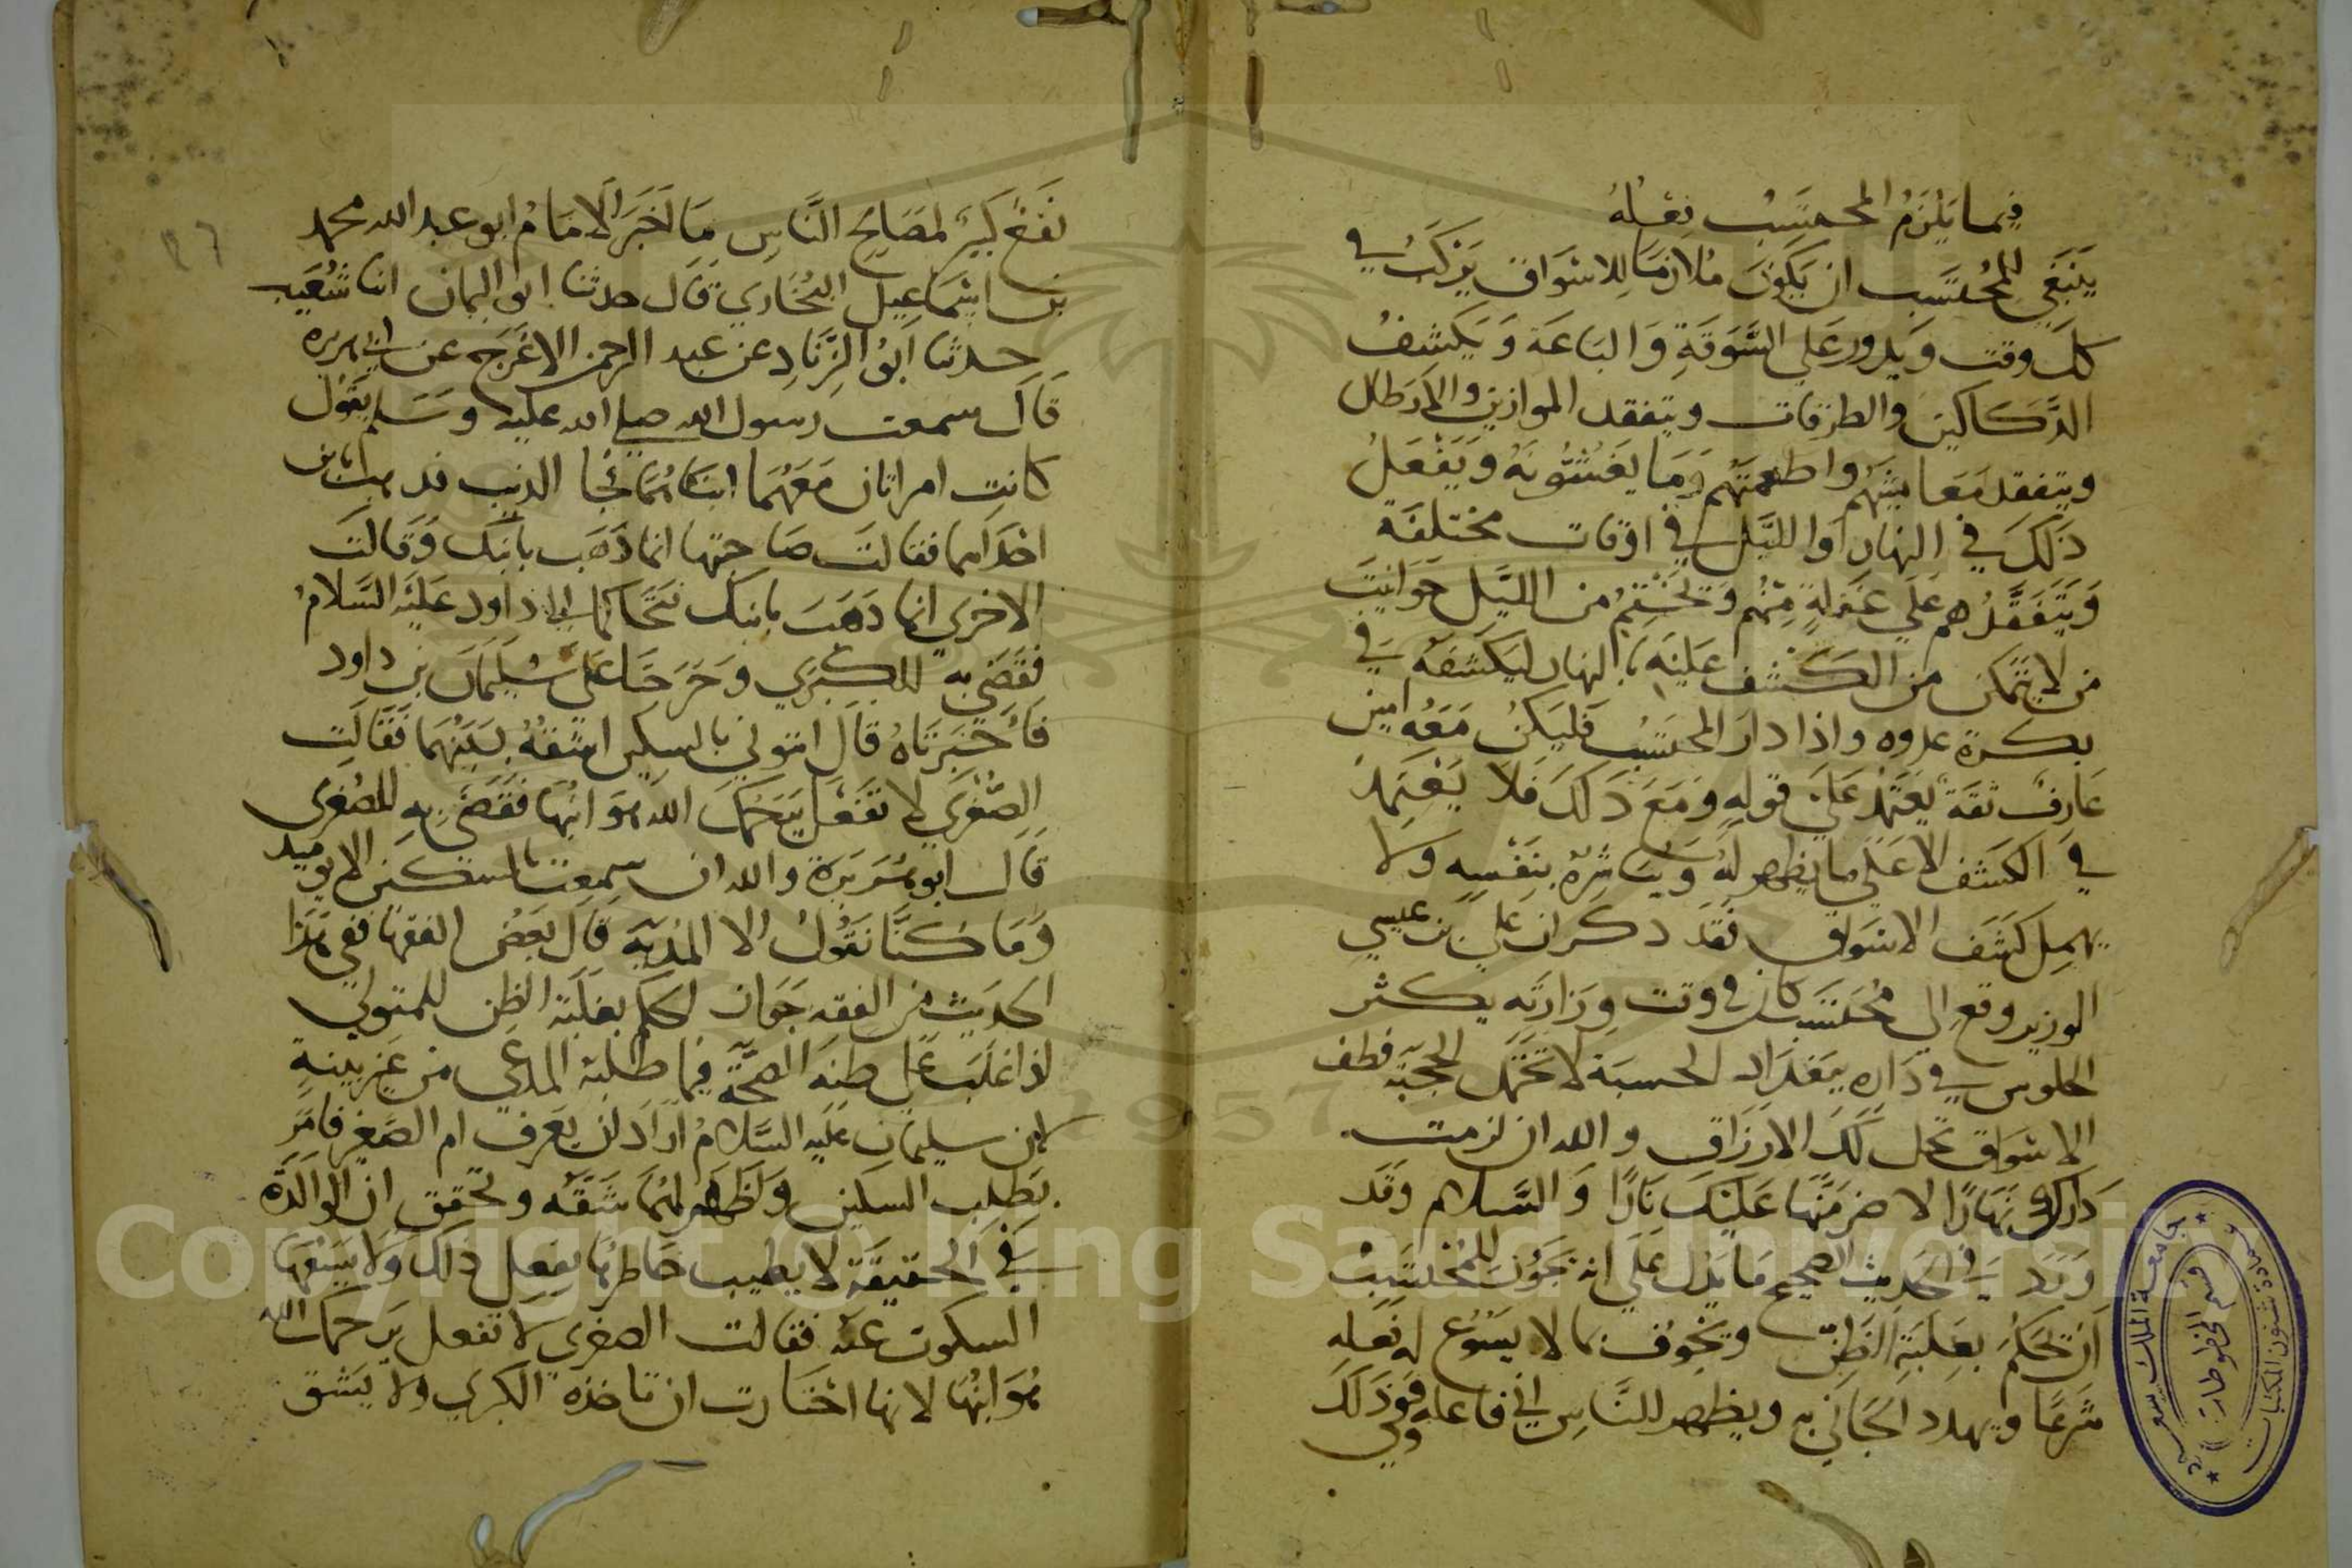 فيما يلزم المحتسب فعله
ينبغي للمحتسب ان يكون ملازما للاسواق يركب في
كل وقت ويدور على السوقة والباعة ويكشف
الدكاكين والطرقات ويتفقد الموازين والارطال
ويتفقد معايشهم واطعمتهم وما يغشونه ويفعل
ذلك في النهار او الليل في اوقات مختلفة
ويتفقدهم على غفلة منهم ويختم من الليل حوانيت
من لا يتمكن من الكشف عليه بالنهار ليكشفه في
بكرة غدوه واذا دار المحتسب فليكن معه امين
عارف ثقة يعتمد على قوله ومع ذلك فلا يعتمد
في الكشف الا على ما يظهر له ويباشره بنفسه ولا
يهمل كشف الاسواق فقد ذكر ان علي بن عيسى
الوزير وقع الى محتسب كان في وقت وزارته يكثر
الجلوس في داره ببغداد الحسبة لا تحتمل الحجبة فطف
الاسواق تحل لك الارزاق والله ان لزمت
دارك نهارا لاضرمنها عليك نارا والسلام وقد
ورد في الحديث الصحيح ما يدل على انه يجوز للمحتسب
ان يحكم بغلبة الظن ويخوف بما لا يسوغ له فعله
شرعا ويهدد الجاني به ويظهر للناس اني فاعله وفي ذلك
نفع كبير لمصالح الناس ما اخبر الامام ابو عبد الله محمد
بن اسماعيل البخاري قال حدثنا ابو اليمان انا شعيب
حدثنا ابو الزناد عن عبد الرحمن الاعرج عن ابي هريره
قال سمعت رسول الله صلى الله عليه وسلم يقول
كانت امراتان معهما ابناهما فجا الذيب فذهب بابن
احداهما فقالت صاحبتها انما ذهب بابنك وقالت
الاخرى انما ذهب بابنك فتحاكما الى داود عليه السلام
فقضى به للكبرى وخرجتا على سليمان بن داود
فاخبرتاه قال ائتوني بالسكين اشقه بينهما فقالت
الصغرى لا تفعل يرحمك الله هو ابنها فقضى به للصغرى
قال ابو هريرة والله ان سمعت بالسكين الا يوميد
وما كنا نقول الا المدية قال بعض الفقها ففي هذا
الحديث من الفقه جواز الحكم بغلبة الظن للمتولي
اذا غلب على ظنه الصحة فيما طلبه المدعي من غير بينة
لان سليمان عليه السلام اراد ان يعرف ام الصغير فامر
بطلب السكين واظهر لهما شقه وتحقق ان الوالدة
في الحقيقة لا يطيب خاطرها بفعل ذلك ولا يسعها
السكوت عنه فقالت الصغرى لا تفعل يرحمك الله
هو ابنها لانها اختارت ان تاخذه الكبرى ولا يشق
جامعة الملك سعود
عمادة شئون المكتبات
قسم المخطوطات
1957
Copyright © King Saud University